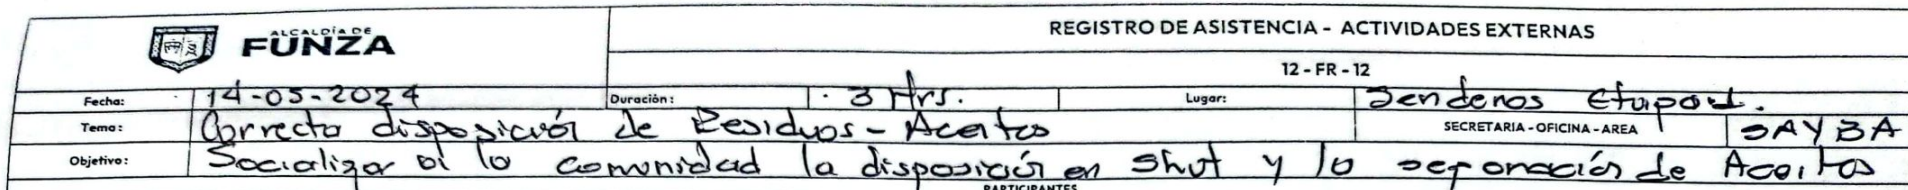 ALCALDÍA DE
FUNZA
REGISTRO DE ASISTENCIA - ACTIVIDADES EXTERNAS
12 - FR - 12
Fecha: 14-05-2024 Duración: 3 Hrs. Lugar: Senderos Etapa
Tema: Correcta disposición de Residuos - Aceites SECRETARIA - OFICINA - AREA SAYBA
Objetivo: Socializar a la comunidad la disposición en Shut y la separación de Aceites
PARTICIPANTES